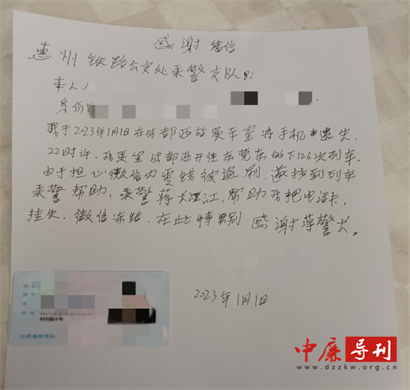 感谢信
惠州铁路公安处乘警支队:
本人
身份
我于2023年1月1日在成都西站候车室将手机遗失
22时许,我乘坐成都西开往东莞东的K126次列车
由于担心微信内零钱被盗刷,遂找到列车
乘警帮助,乘警蒋大江,帮助我把电话卡
挂失,微信冻结,在此特别感谢蒋警长。
2023年1月1日
中廉导刊
www.dzzkw.org.cn